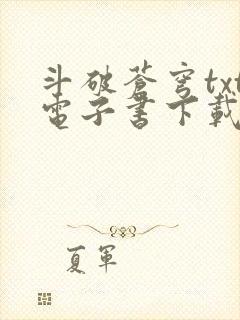 斗破蒼穹txt
電子書下載
夏軍